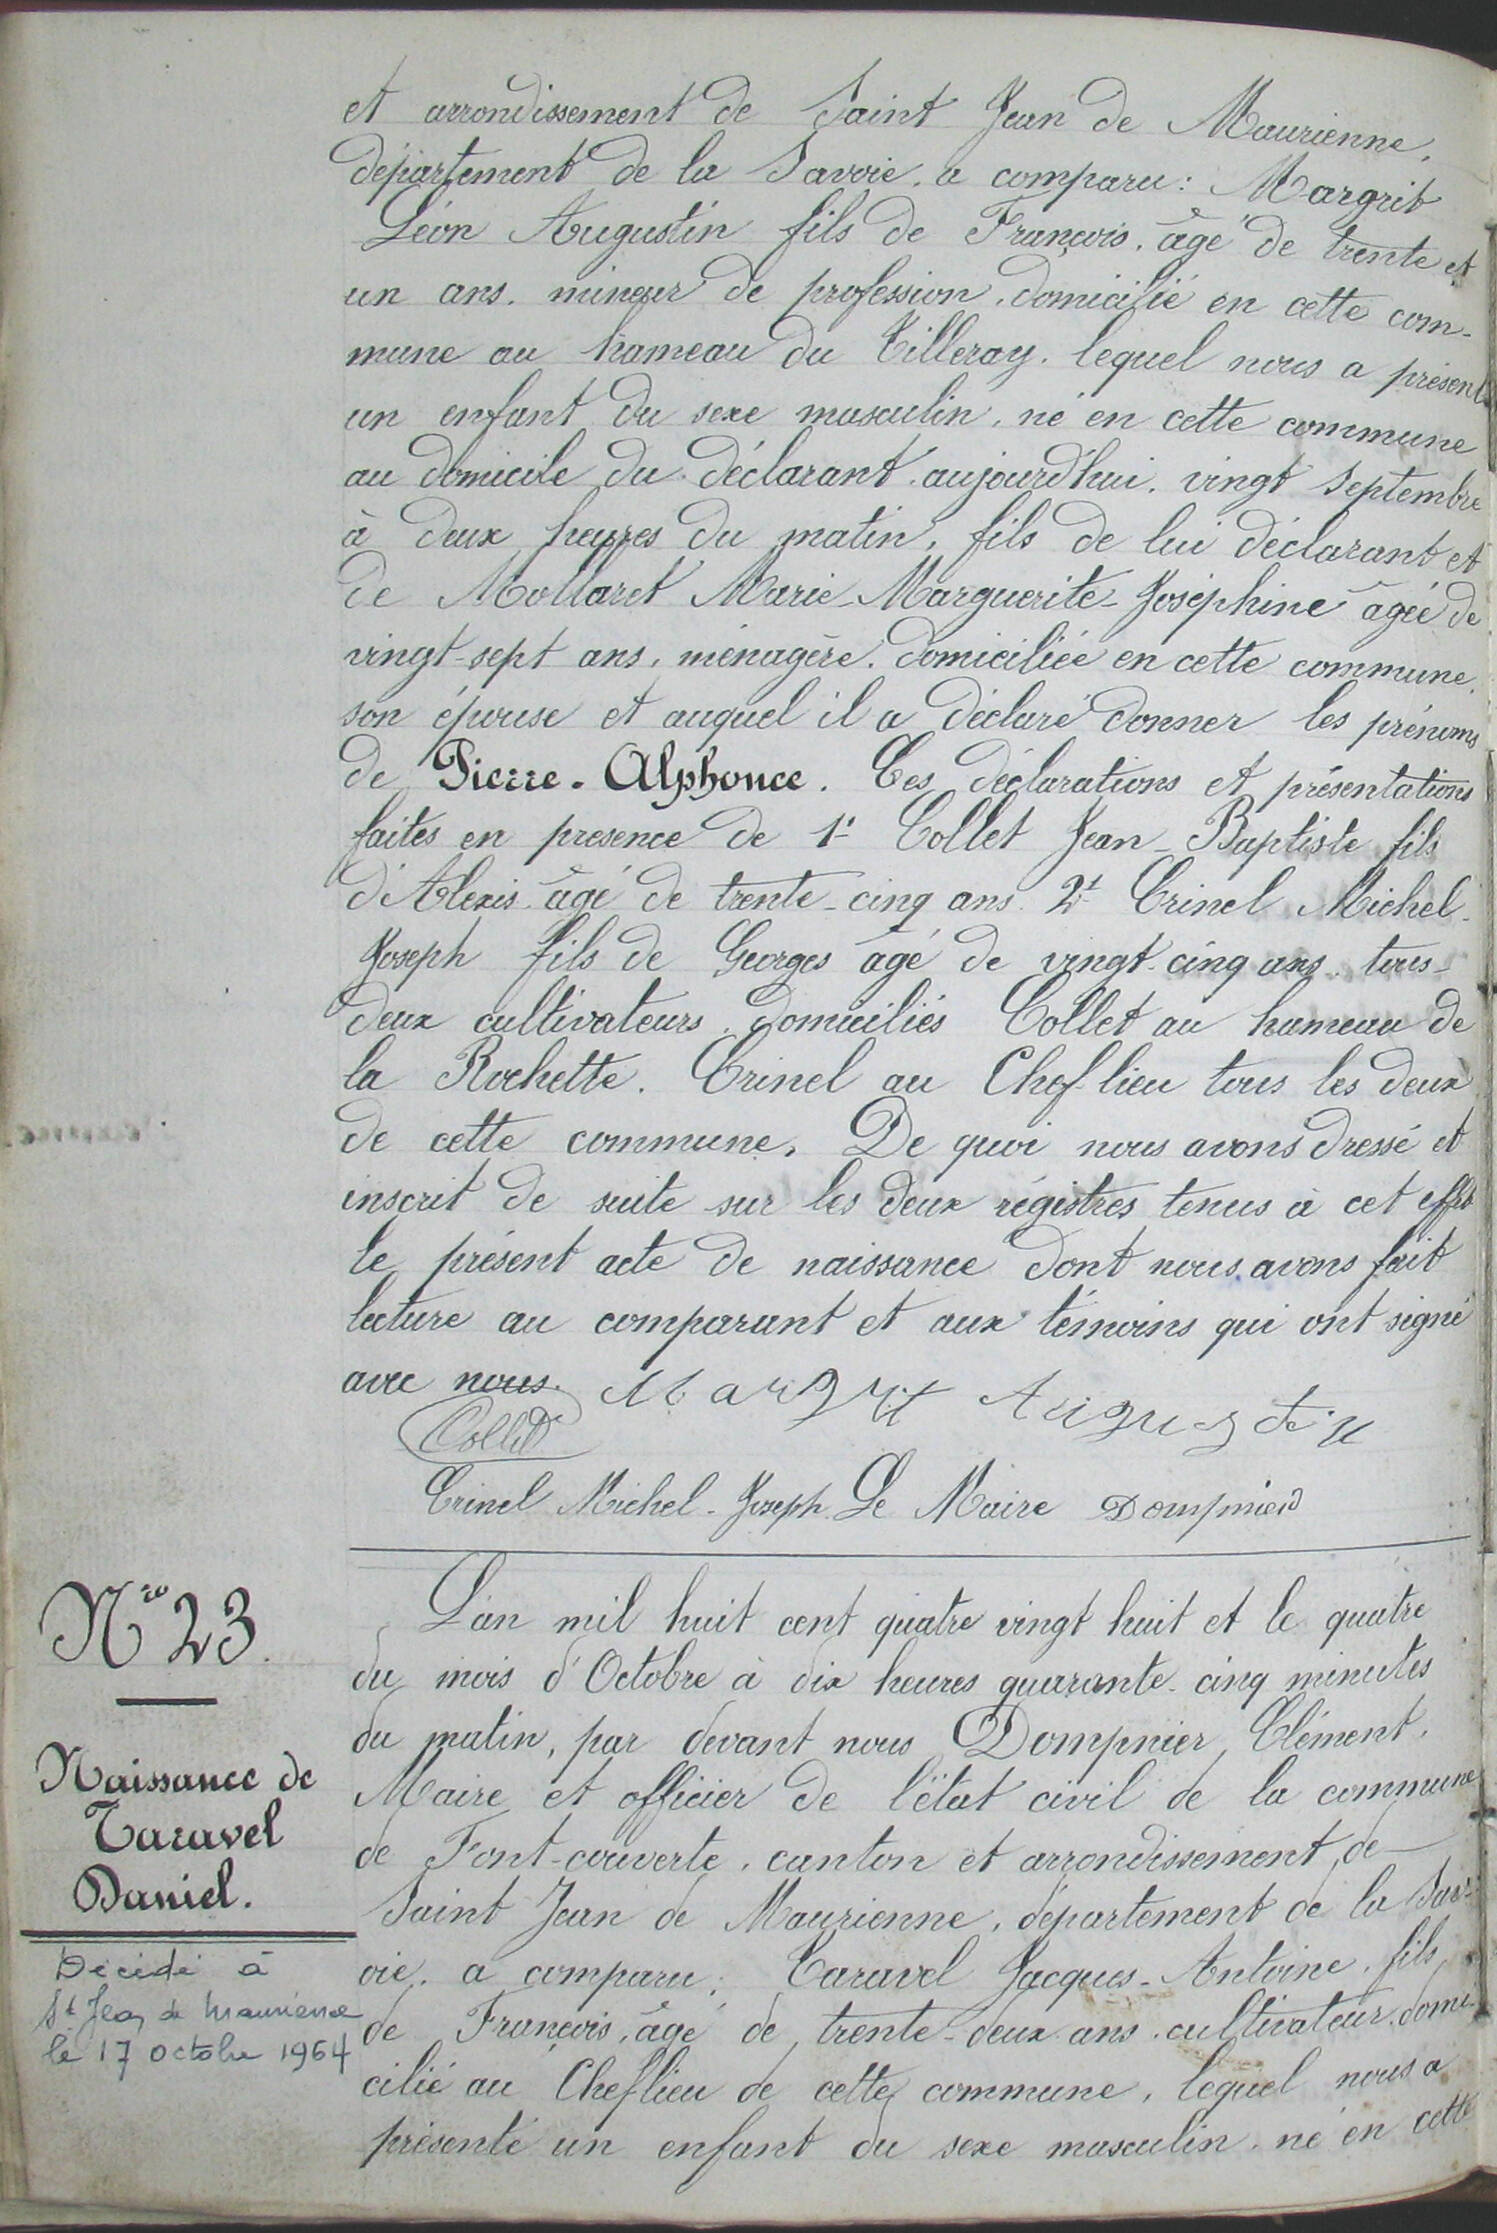 et arrondissement de Saint Jean de Maurienne,
département de la Savoie, a comparu: Margrit
Léon Augustin fils de François, âgé de trente et
un ans, mineur de profession, domicilié en cette com-
mune au hameau du Tilleray, lequel nous a présenté
un enfant du sexe masculin, né en cette commune
au domicile du déclarant aujourd'hui, vingt septembre
à deux heures du matin, fils de lui déclarant et
de Mollaret Marie-Marguerite-Joséphine âgée de
vingt-sept ans, ménagère, domiciliée en cette commune,
son épouse et auquel il a déclaré donner les prénoms
de Pierre-Alphonce. Ces déclarations et présentations
faites en presence de 1º Collet Jean-Baptiste fils
d'Alexis âgé de trente-cinq ans 2º Crinel Michel-
Joseph fils de Georges âgé de vingt-cinq ans, tous-
deux cultivateurs, domiciliés Collet au hameau de
la Rochette, Crinel au Chef-lieu tous les deux
de cette commune. De quoi nous avons dressé et
inscrit de suite sur les deux régistres tenus à cet effet
le présent acte de naissance dont nous avons fait
lecture au comparant et aux témoins qui ont signé
avec nous. Margrit Augustin
Collet
Crinel Michel-Joseph Le Maire Dompnier
Nro 23.
Naissance de
Taravel
Daniel.
Décédé à
St Jean de Maurienne
le 17 octobre 1964
L'an mil huit cent quatre vingt huit et le quatre
du mois d'Octobre à dix heures quarante-cinq minutes
du matin, par devant nous Dompnier Clément,
Maire et officier de l'état civil de la commune
de Font-couverte, canton et arrondissement de
Saint Jean de Maurienne, département de la Sav-
oie, a comparu: Taravel Jacques-Antoine, fils
de François, âgé de trente-deux ans, cultivateur, domi-
cilié au Cheflieu de cette commune, lequel nous a
présenté un enfant du sexe masculin, né en cette